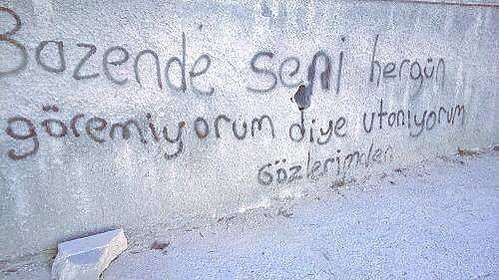 Bazende seni hergün
göremiyorum diye utanıyorum
Gözlerimden